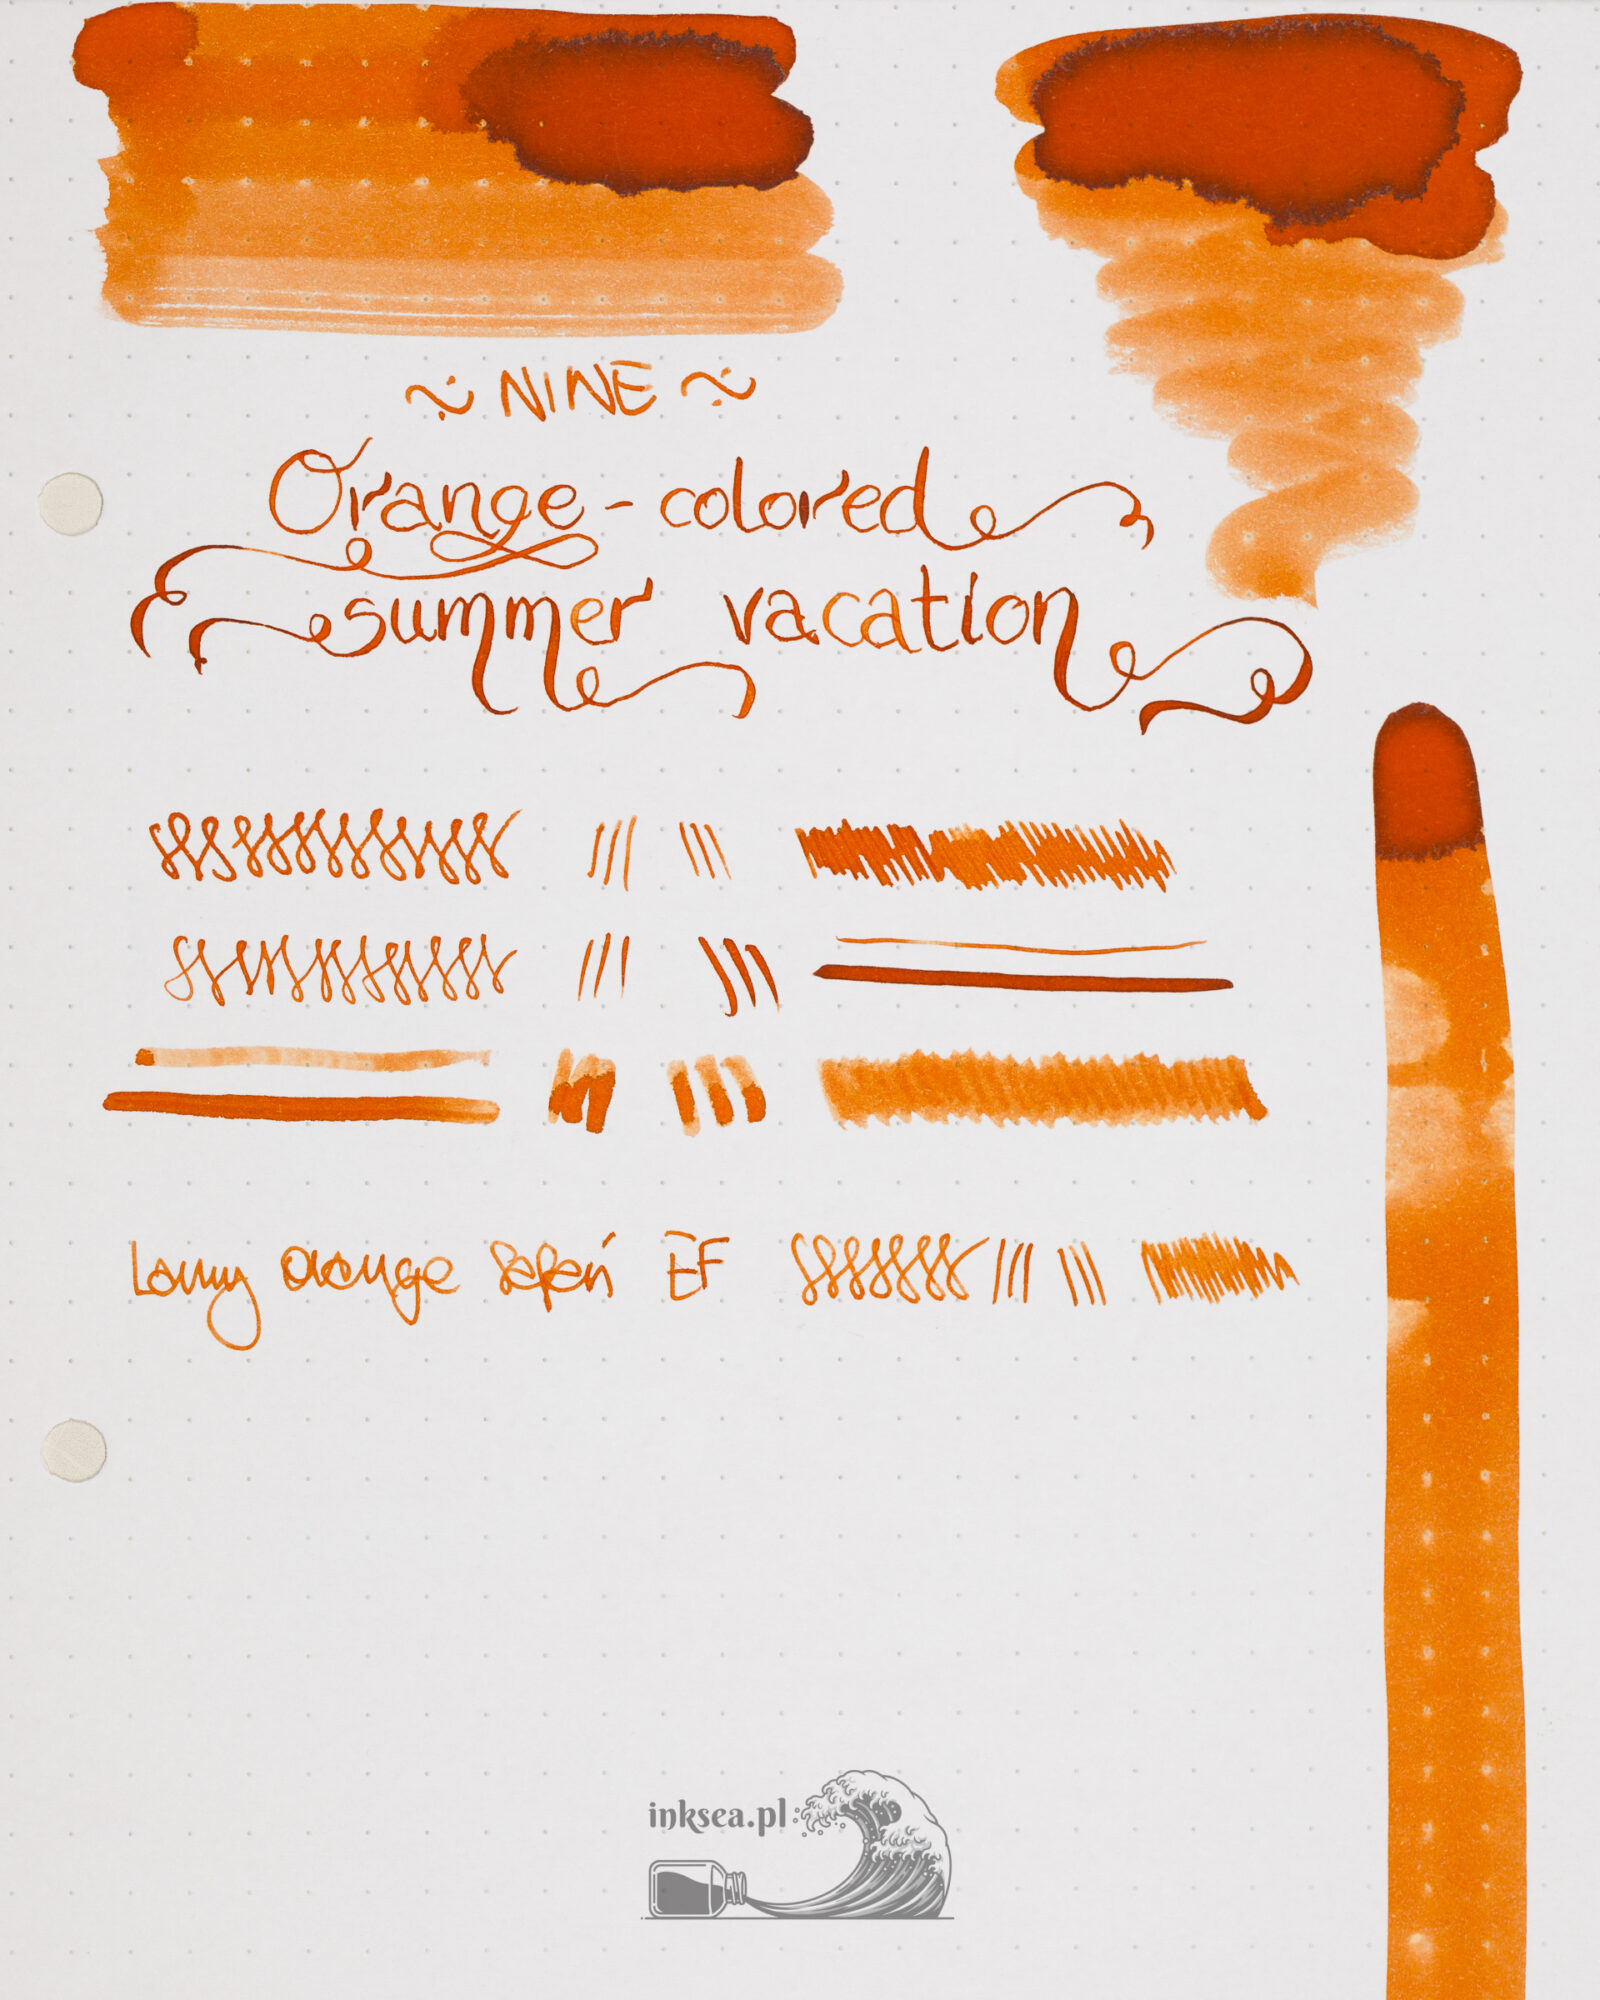 ~ NINE ~
Orange-colored
summer vacation
Lamy orange Safari EF
inksea.pl